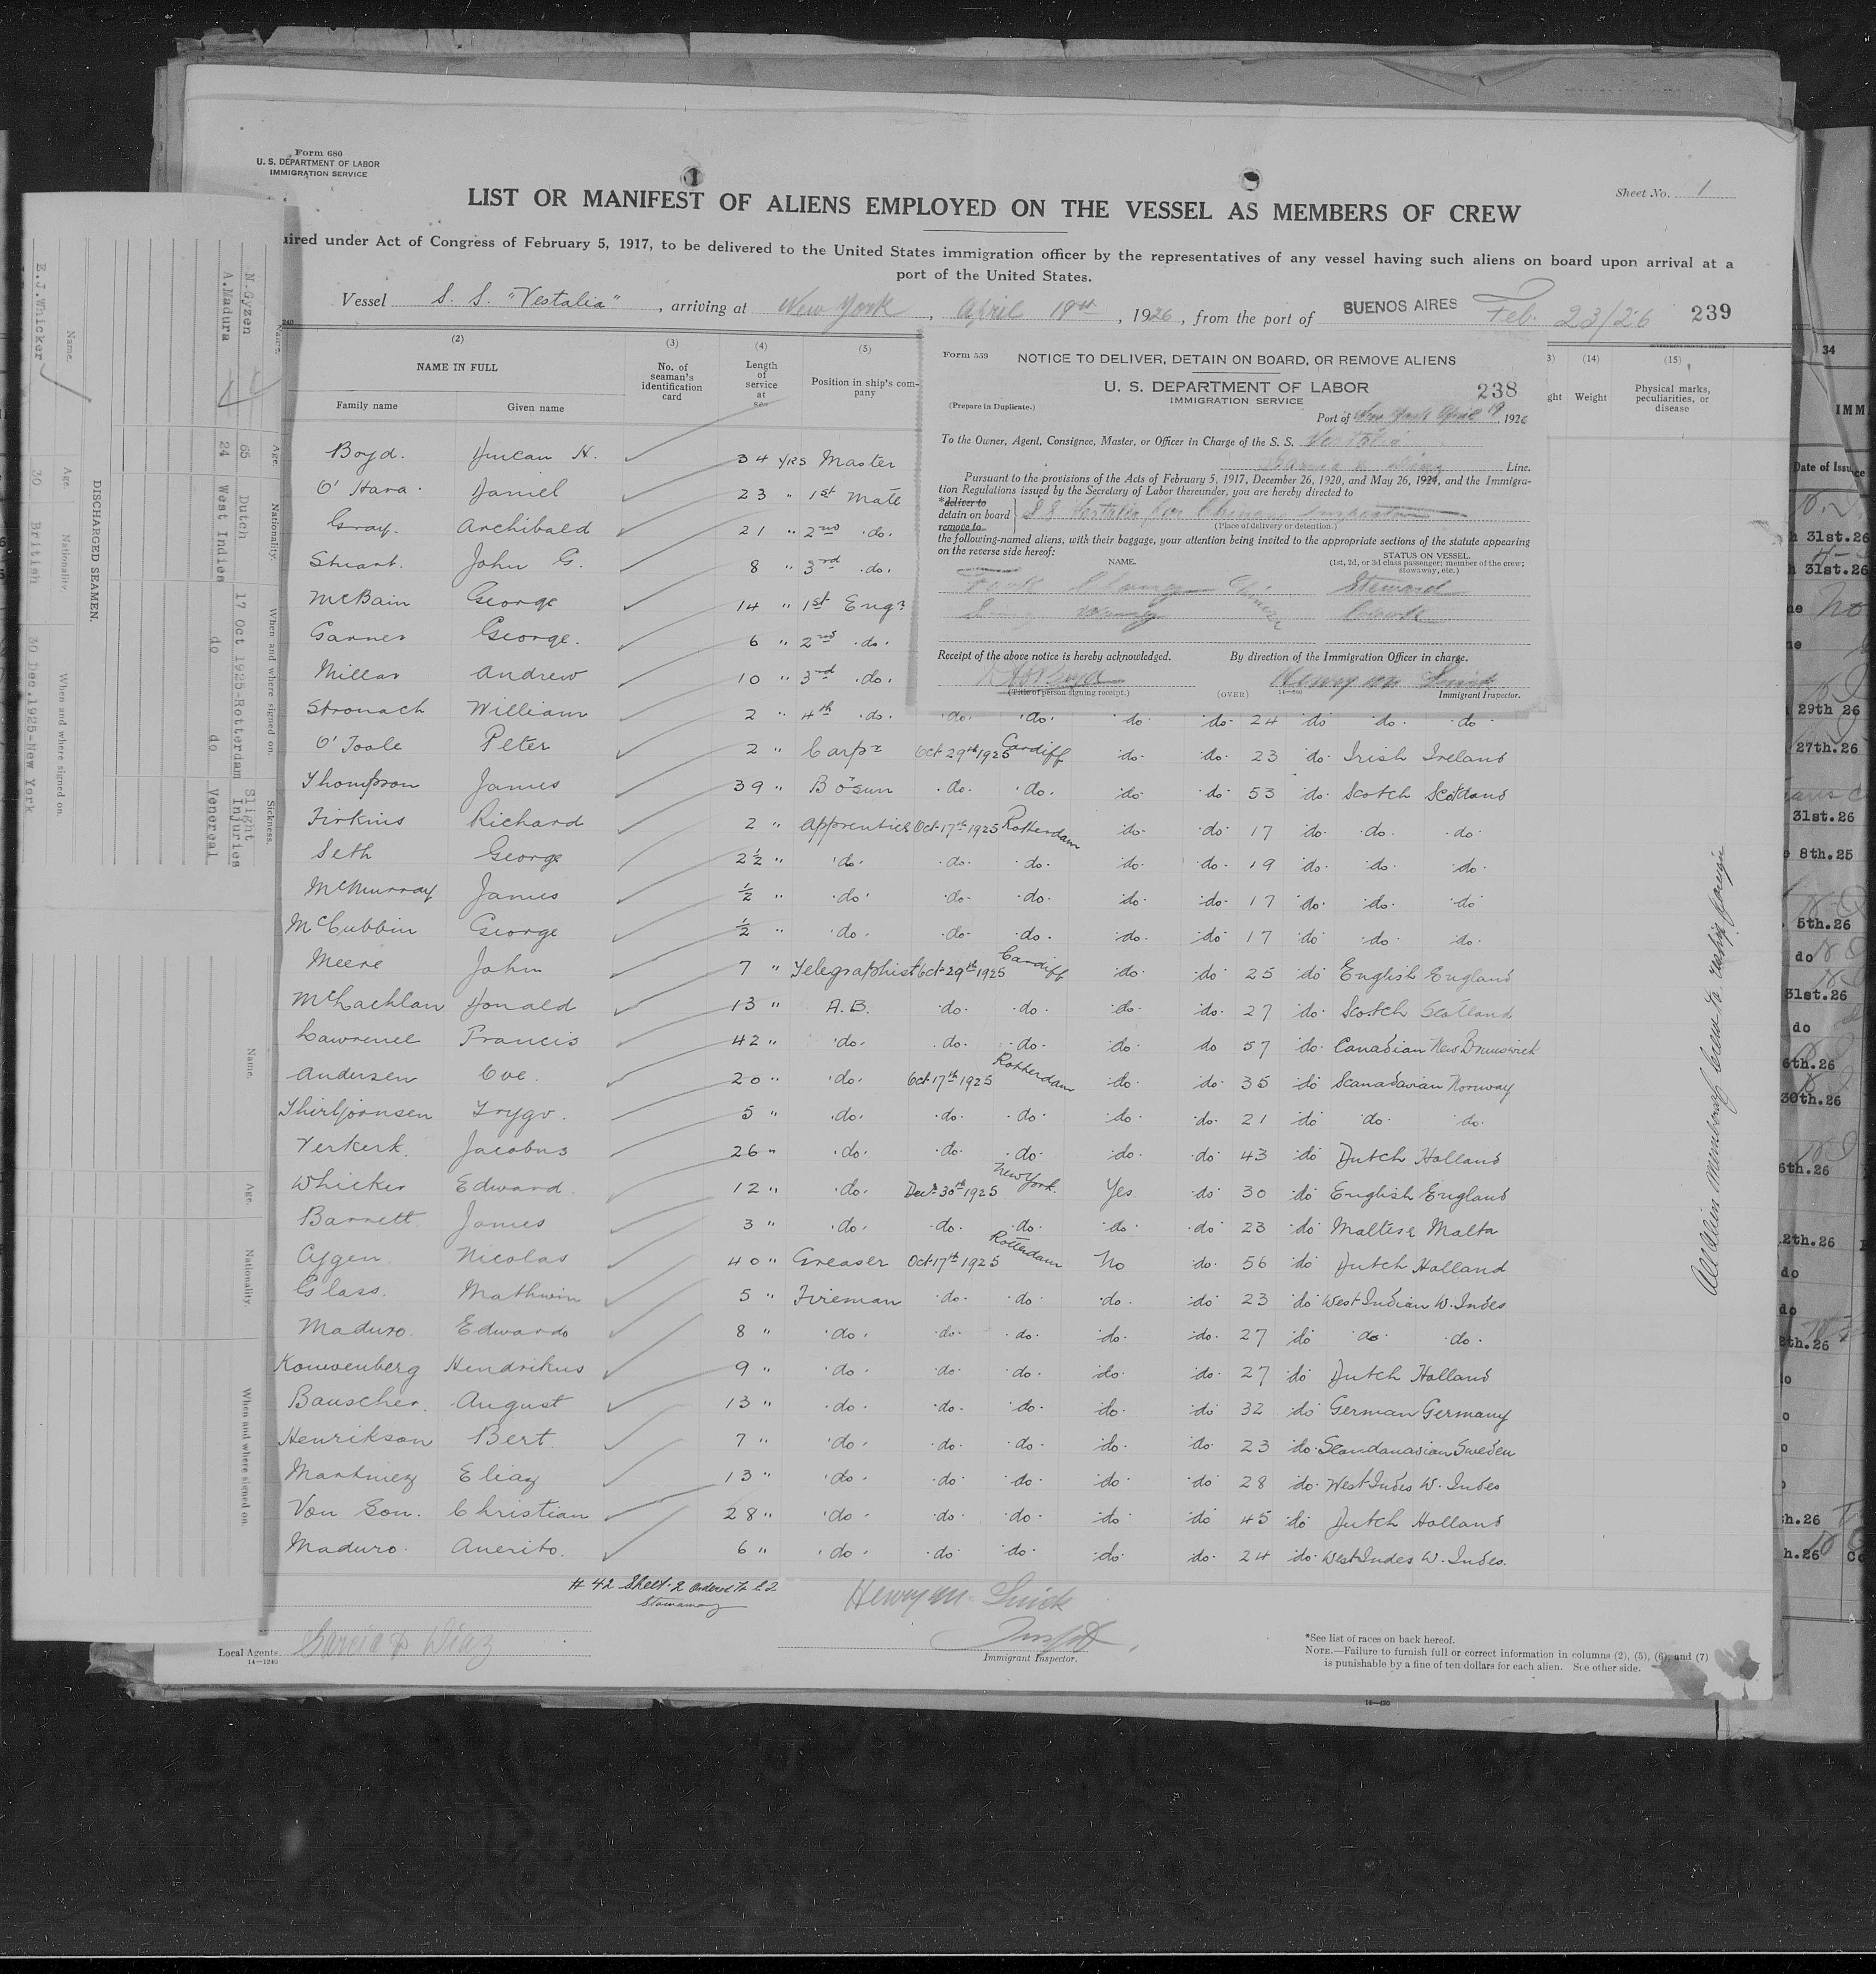 Form 680
U. S. DEPARTMENT OF LABOR
IMMIGRATION SERVICE
Sheet No. 1
LIST OR MANIFEST OF ALIENS EMPLOYED ON THE VESSEL AS MEMBERS OF CREW
uired under Act of Congress of February 5, 1917, to be delivered to the United States immigration officer by the representatives of any vessel having such aliens on board upon arrival at a
port of the United States.
Vessel S. S. "Vestalia", arriving at New York, April 19th, 1926, from the port of BUENOS AIRES Feb. 23/26 239
(2) (3) (4) (5) 3) (14) (15)
NAME IN FULL
Family name Given name
No. of seaman's identification card
Length of service at sea
Position in ship's company
ght Weight
Physical marks, peculiarities, or disease
Form 559
NOTICE TO DELIVER, DETAIN ON BOARD, OR REMOVE ALIENS
U. S. DEPARTMENT OF LABOR 238
IMMIGRATION SERVICE
(Prepare in Duplicate.)
Port of New York April 19, 1926
To the Owner, Agent, Consignee, Master, or Officer in Charge of the S. S. Vestalia
Garcia & Diaz Line.
Pursuant to the provisions of the Acts of February 5, 1917, December 26, 1920, and May 26, 1924, and the Immigra-
tion Regulations issued by the Secretary of Labor thereunder, you are hereby directed to
*deliver to
detain on board
remove to
S S Vestalia for Chinese Inspection
(Place of delivery or detention.)
the following-named aliens, with their baggage, your attention being invited to the appropriate sections of the statute appearing
on the reverse side hereof:
NAME. STATUS ON VESSEL.
(1st, 2d, or 3d class passenger; member of the crew; stowaway, etc.)
Chinese Steward
Cook
Receipt of the above notice is hereby acknowledged. By direction of the Immigration Officer in charge.
Henry M. Smick
(Title of person signing receipt.) (OVER) 14—600 Immigrant Inspector.
Boyd. Duncan H. 34 yrs Master
O'Hara. Daniel 23 " 1st Mate
Gray. Archibald 21 " 2nd do.
Stuart. John G. 8 " 3rd do.
McBain George 14 " 1st Engr
Garner George. 6 " 2nd do.
Millar Andrew 10 " 3rd do.
Stronach William 2 " 4th do. do. do. do do 24 do do. do
O'Toole Peter 2 " Carpr Oct 29th 1925 Cardiff do. do. 23 do. Irish Ireland
Thompson James 39 " Bosun do. do. do do 53 do. Scotch Scotland
Firkins Richard 2 " Apprentice Oct 17th 1925 Rotterdam do. do. 17 do. do. do.
Seth George 2½ " do. do. do. do. do. 19 do. do. do.
McMurray James ½ " do. do. do. do. do. 17 do. do. do
McCubbin George ½ " do. do. do. do. do 17 do do. do.
Meere John 7 " Telegraphist Oct 29th 1925 Cardiff do. do 25 do English England
McLachlan Donald 13 " A.B. do. do. do. do. 27 do. Scotch Scotland
Lawrence Francis 42 " do. do. do. do. do 57 do. Canadian New Brunswick
Andersen Ove. 20 " do. Oct 17th 1925 Rotterdam do. do. 35 do Scanadavian Norway
Thirbjornsen Trygv. 5 " do. do. do. do. do. 21 do do. do.
Verkerk. Jacobus 26 " do. do. do. do. do. 43 do Dutch Holland
Whicker Edward. 12 " do. Dec. 30th 1925 New York. Yes. do 30 do English England
Barrett James 3 " do. do. do. do do 23 do. Maltese Malta
Cygen Nicolas 40 " Greaser Oct 17th 1925 Rotterdam No do. 56 do Dutch Holland
Glass. Mathwin 5 " Fireman do. do. do. do 23 do West Indian W. Indes
Maduro. Edwardo 8 " do. do. do. do. do. 27 do do. do.
Kouwenberg Hendrikus 9 " do. do. do. do. do. 27 do Dutch Holland
Bauscher. August 13 " do. do. do. do. do 32 do German Germany
Henrikson Bert. 7 " do. do. do. do. do. 23 do. Scandanavian Sweden
Martinez Eliaz 13 " do. do. do. do. do 28 do. West Indes W. Indes
Von Son. Christian 28 " do. do. do. do. do 45 do Dutch Holland
Maduro. Anerito. 6 " do. do. do. do. do. 24 do. West Indes W. Indes.
# 42 Sheet 2 ordered to E.I.
Henry M. Smick
Local Agents Garcia & Diaz
14—1240
Immigrant Inspector.
*See list of races on back hereof.
NOTE.—Failure to furnish full or correct information in columns (2), (5), (6), and (7)
is punishable by a fine of ten dollars for each alien. See other side.
All alien members of crew to reship foreign
DISCHARGED SEAMEN.
Name. Age. Nationality. When and where signed on. Sickness.
N.Gyzen 65 Dutch 17 Oct 1925-Rotterdam Slight Injuries
A.Madura 24 West Indies do do Venereal
Name. Age. Nationality. When and where signed on.
E.J.Whicker 30 British 30 Dec.1925-New York
Name. Age. Nationality. When and where signed on.
34
IMM
Date of Issuance
31st.26
31st.26
29th 26
27th.26
31st.26
8th.25
5th.26
do
31st.26
do
6th.26
30th.26
6th.26
2th.26
do
do
8th.26
h.26
h.26
14—430